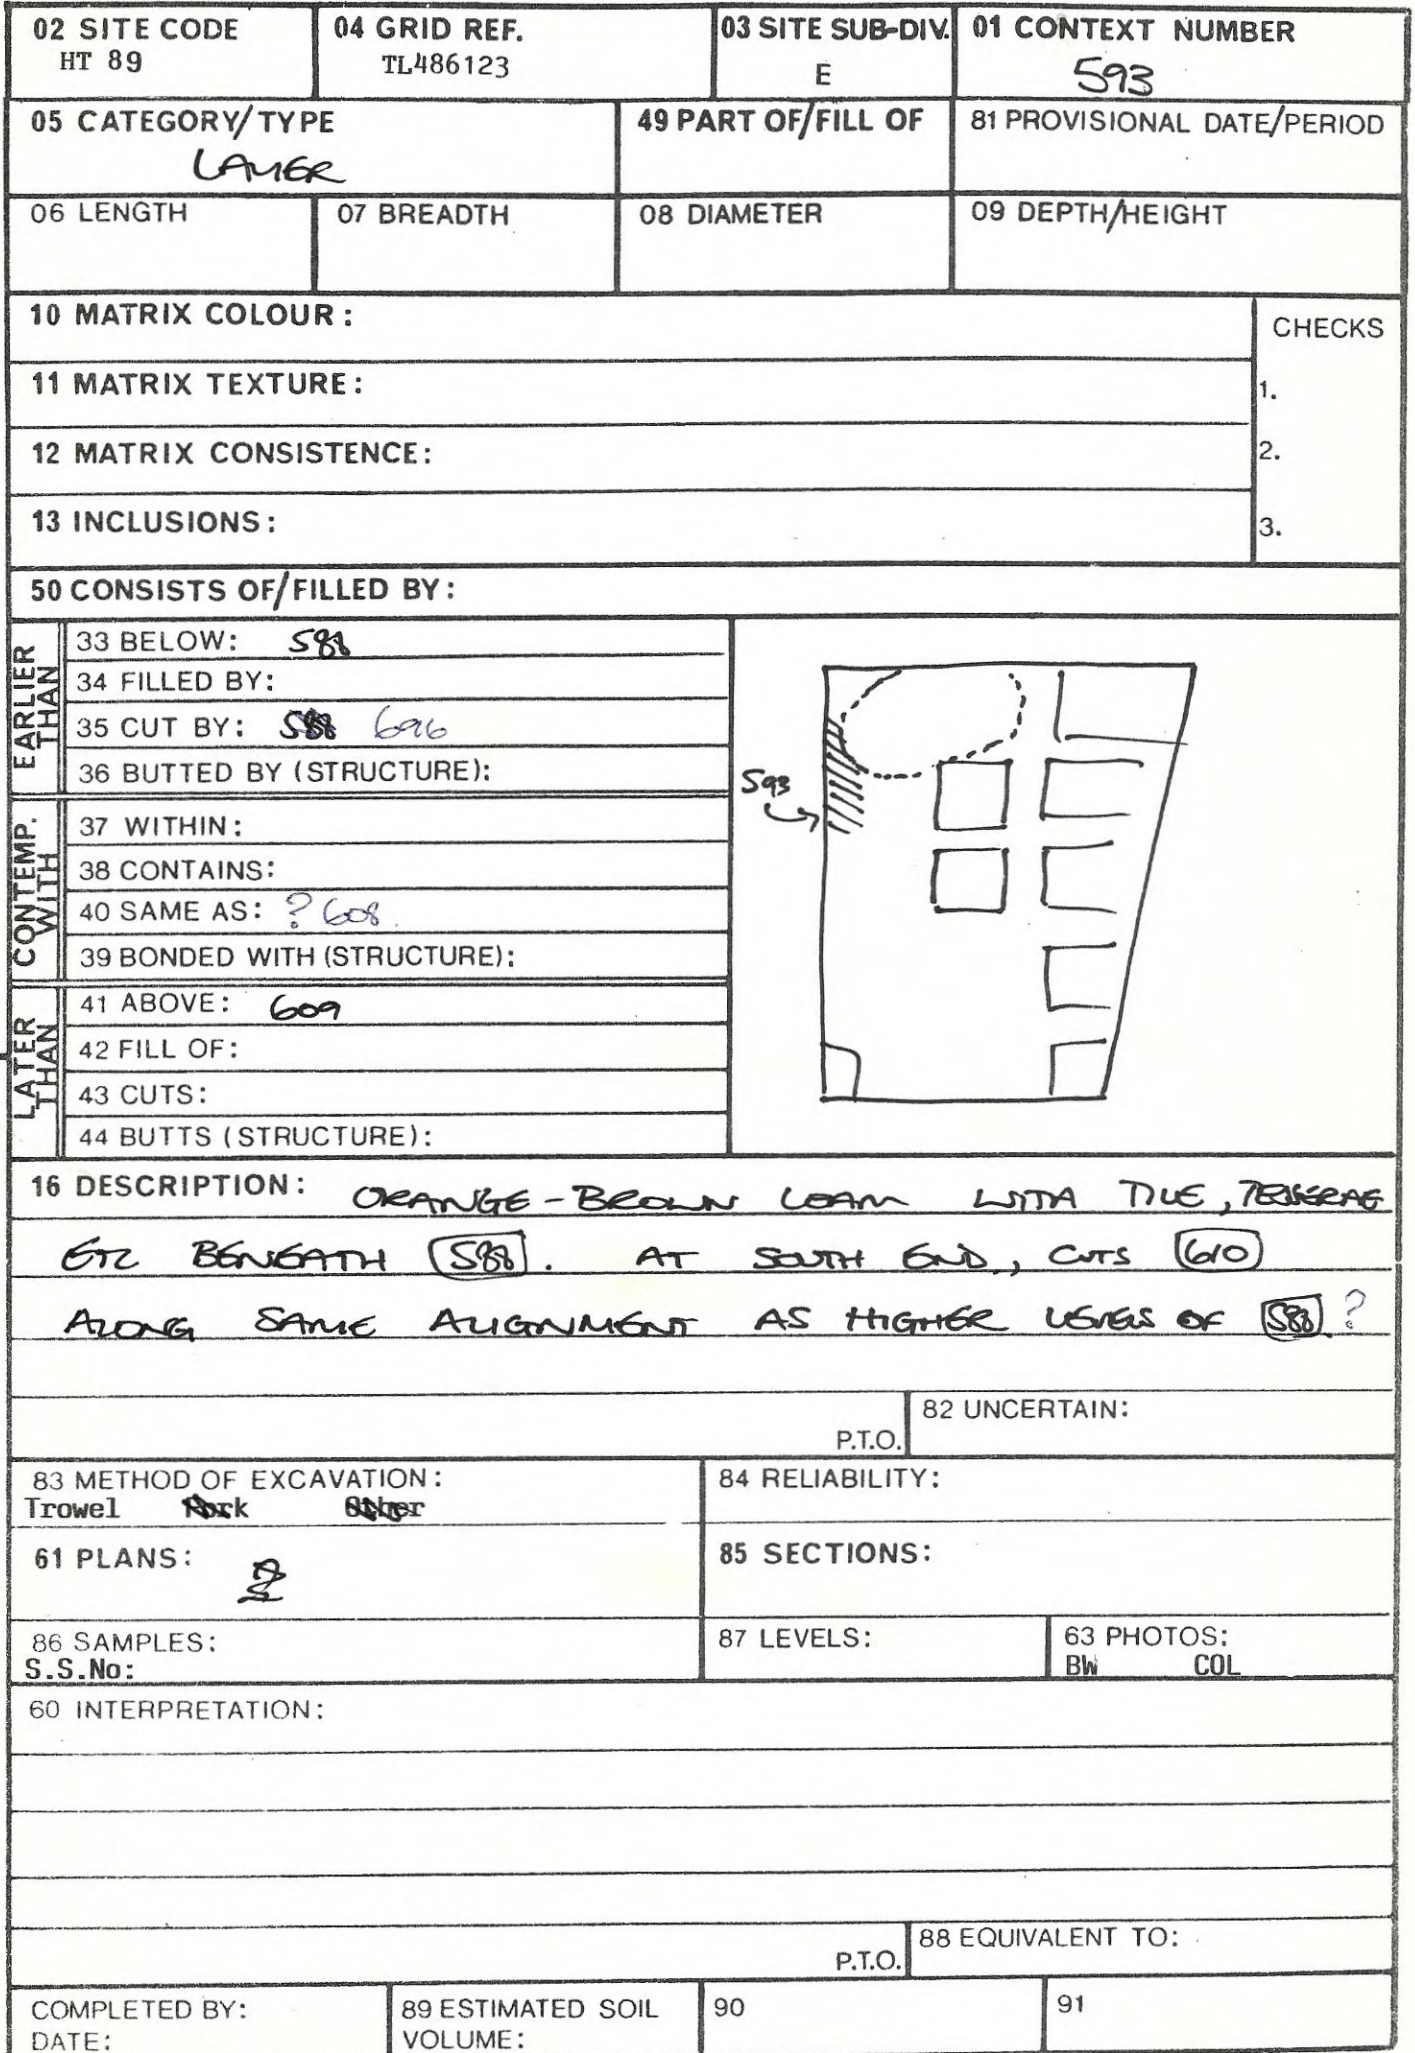 02 SITE CODE
HT 89
04 GRID REF.
TL486123
03 SITE SUB-DIV.
E
01 CONTEXT NUMBER
593
05 CATEGORY/TYPE
LAYER
49 PART OF/FILL OF
81 PROVISIONAL DATE/PERIOD
06 LENGTH
07 BREADTH
08 DIAMETER
09 DEPTH/HEIGHT
10 MATRIX COLOUR:
CHECKS
11 MATRIX TEXTURE:
1.
12 MATRIX CONSISTENCE:
2.
13 INCLUSIONS:
3.
50 CONSISTS OF/FILLED BY:
EARLIER THAN
33 BELOW: 588
34 FILLED BY:
35 CUT BY: 588 696
36 BUTTED BY (STRUCTURE):
CONTEMP. WITH
37 WITHIN:
38 CONTAINS:
40 SAME AS: ? 608
39 BONDED WITH (STRUCTURE):
LATER THAN
41 ABOVE: 609
42 FILL OF:
43 CUTS:
44 BUTTS (STRUCTURE):
593
16 DESCRIPTION: ORANGE-BROWN LOAM WITH TILE, TESSERAE
ETC BENEATH 588. AT SOUTH END, CUTS 610
ALONG SAME ALIGNMENT AS HIGHER LEVELS OF 588 ?
P.T.O.
82 UNCERTAIN:
83 METHOD OF EXCAVATION:
Trowel Fork Other
84 RELIABILITY:
61 PLANS:
85 SECTIONS:
86 SAMPLES:
S.S.No:
87 LEVELS:
63 PHOTOS:
BW COL
60 INTERPRETATION:
P.T.O.
88 EQUIVALENT TO:
COMPLETED BY:
DATE:
89 ESTIMATED SOIL
VOLUME:
90
91